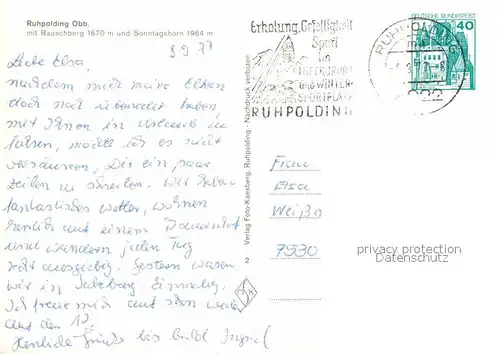 Ruhpolding Obb.
mit Rauschberg 1670 m und Sonntagshorn 1964 m
3 9 77
Liebe Elsa,
nachdem mich meine Eltern
doch noch überredet haben
mit Ihnen in Urlaub zu
fahren, möchte ich es nicht
versäumen, Dir ein paar
Zeilen zu schreiben. Wir haben
fantastisches Wetter, wohnen
herrlich auf einem Bauernhof
und wandern jeden Tag
recht ausgiebig. Gestern waren
wir in Salzburg
Ich freue mich auf
auf den 12.
Herzliche Grüße bis bald
Verlag Foto-Kaesberg, Ruhpolding - Nachdruck verboten
2
Erholung, Geselligkeit
Sport
im
LUFTKURORT
und WINTER-
SPORTPLATZ
RUHPOLDING
RUHPOLDING
DEUTSCHE BUNDESPOST
40
Frau
Elsa
Weißg
7530
privacy protection
Datenschutz